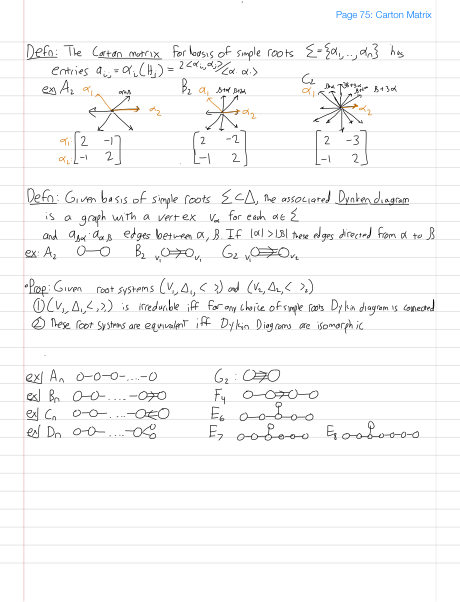 Page 75: Carton Matrix
Defn: The Cartan matrix for basis of simple roots Σ={α₁,..,αₙ} has
entries aᵢ,ⱼ=αᵢ(Hⱼ)= 2<αᵢ,αⱼ>/<α. α.>
ex) A₂ α₁ α₂ B₂ α₁ β+α α₂ C₂ α₁ β+3α α₂
α₁ [2 -1] [2 -2] [2 -3]
α₂ [-1 2] [-1 2] [-1 2]
Defn: Given basis of simple roots Σ⊂Δ, the associated Dynken diagram
is a graph with a vertex vα for each α∈Σ
and aβα·aαβ edges between α, β. If |α|>|β| these edges directed from α to β
ex: A₂ B₂ v₁ v₂ G₂ v₁ v₂
•Prop: Given root systems (V₁,Δ₁,< >) and (V₂,Δ₂,< >₂)
① (V₁,Δ₁,<,>) is irreducible iff for any choice of simple roots Dykin diagram is connected
② These root systems are equivalent iff Dykin Diagrams are isomorphic
ex) Aₙ G₂:
ex) Bₙ F₄
ex) Cₙ E₆
ex) Dₙ E₇ E₈